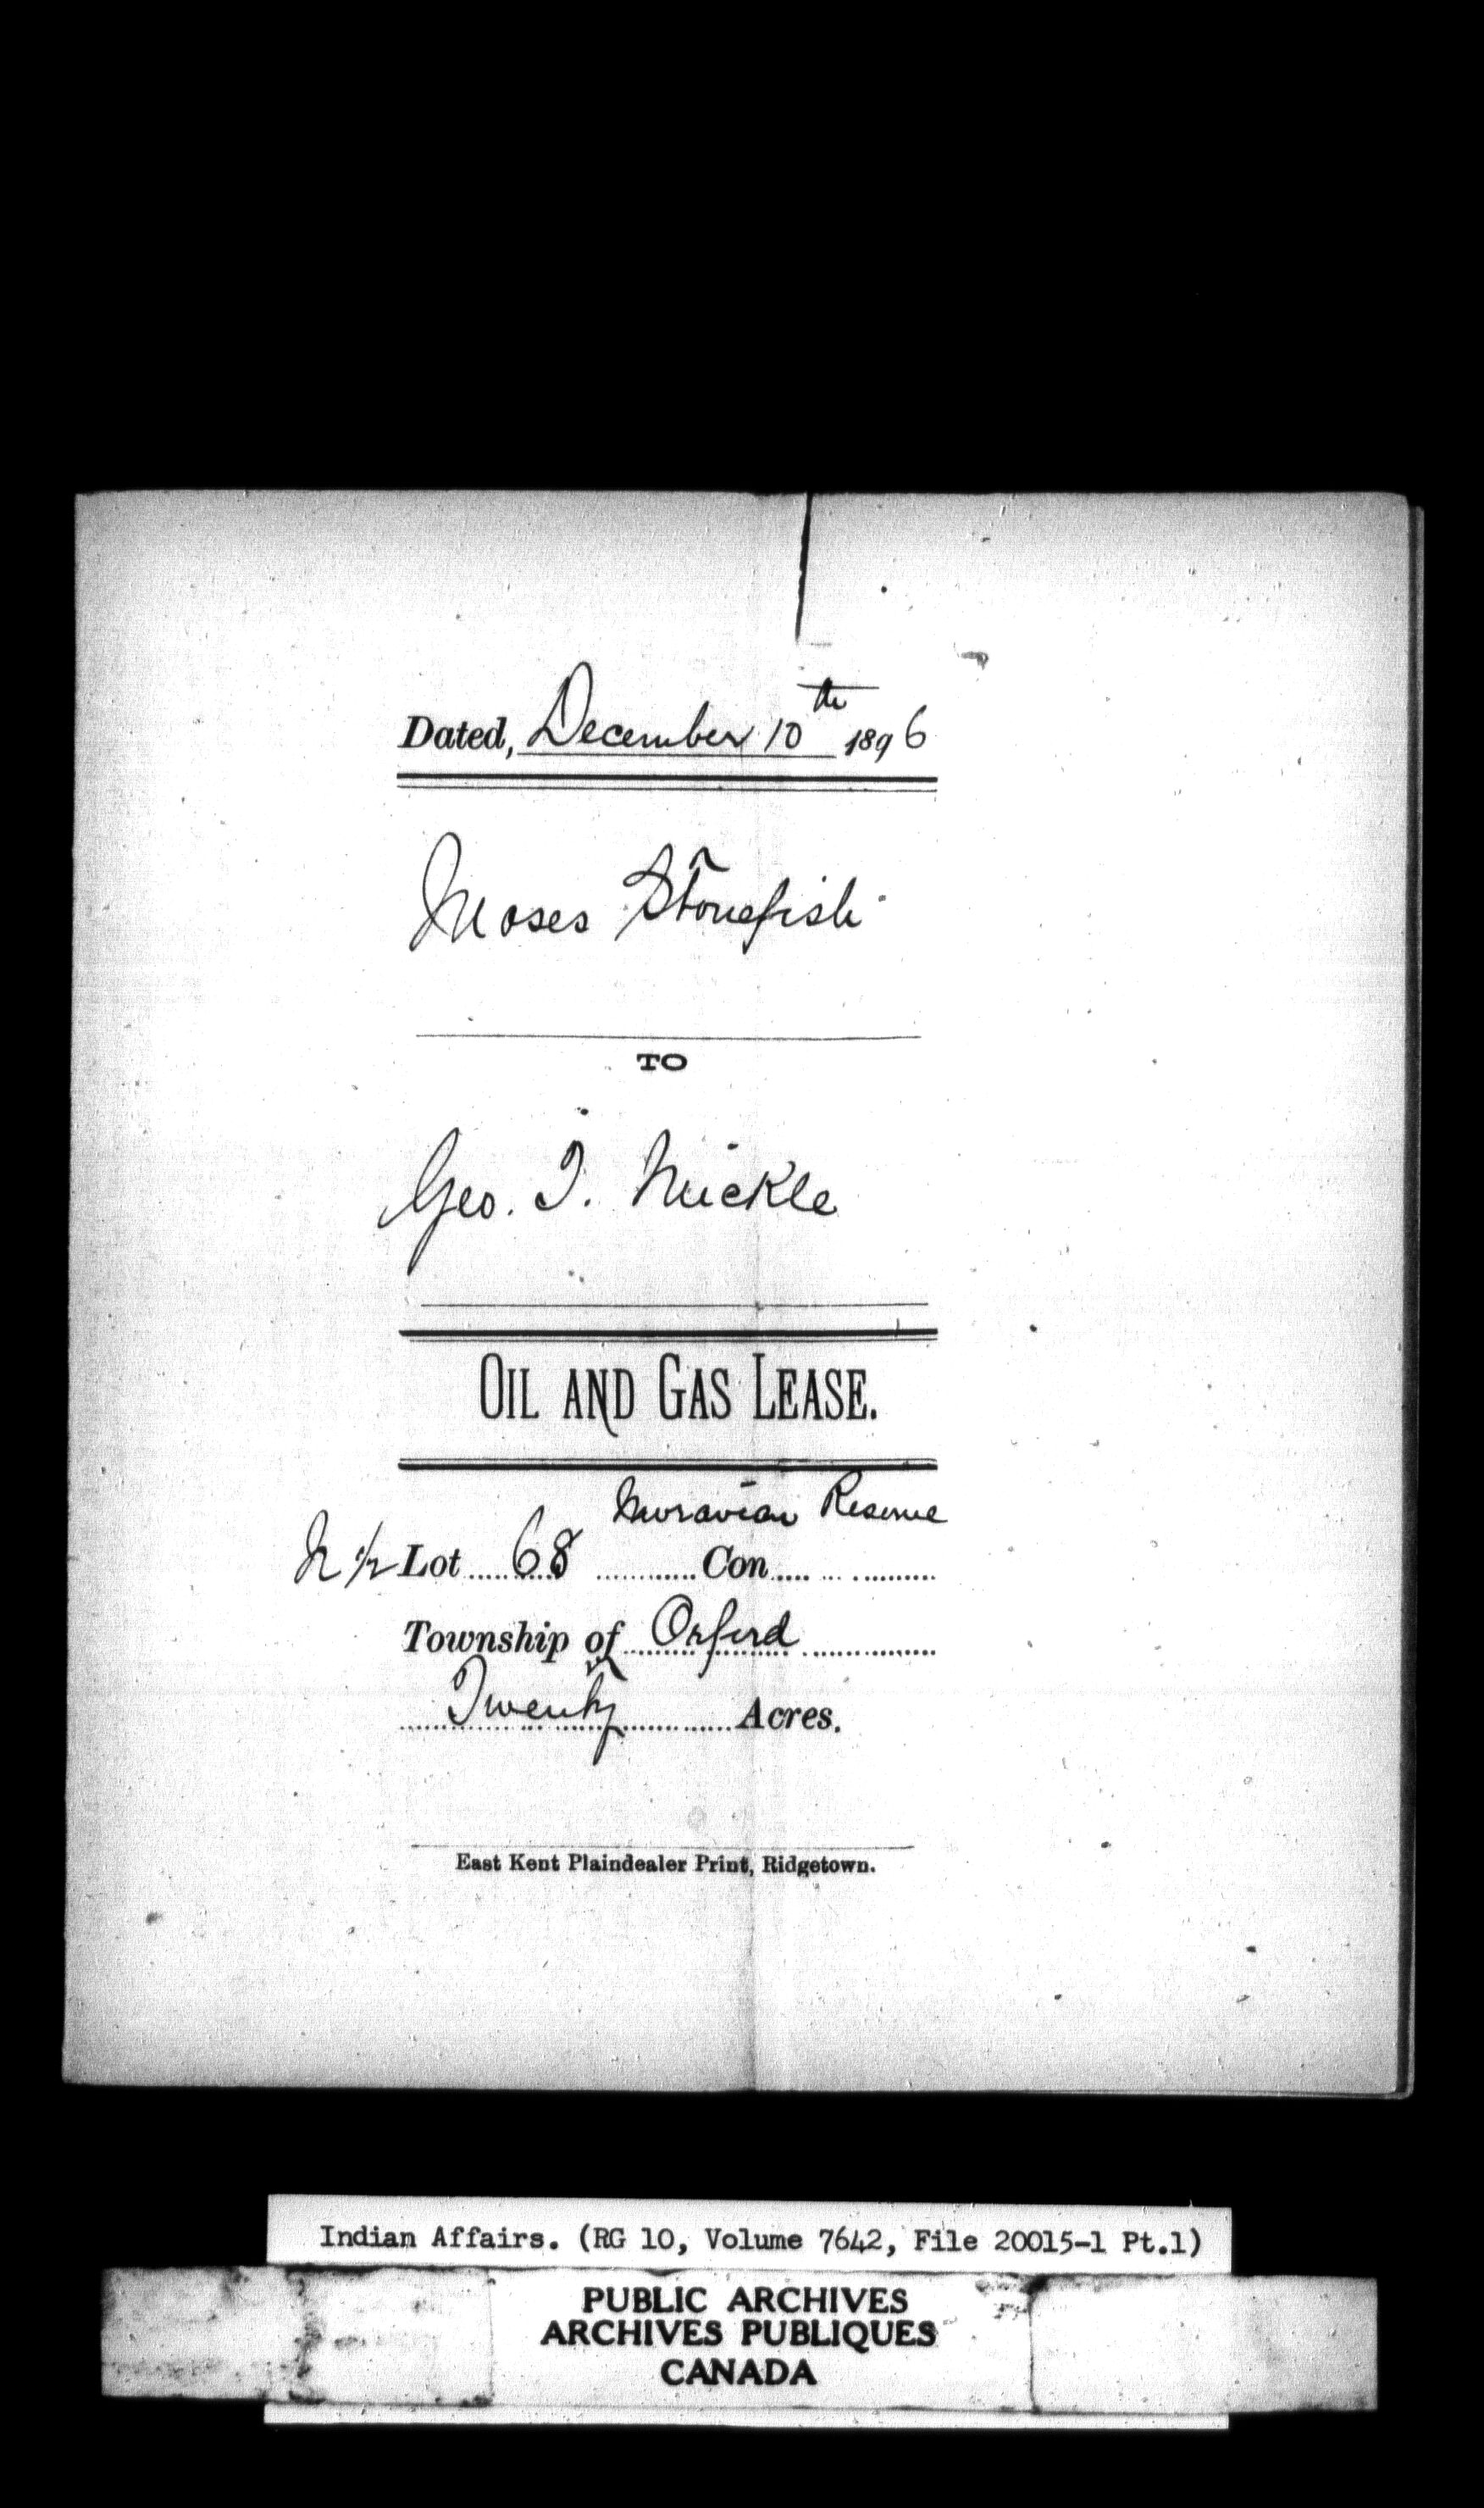 Dated, December 10th 1896
Moses Stonefish
TO
Geo. T. Mickle
OIL AND GAS LEASE.
Moravian Reserve
N 1/2 Lot 68 Con
Township of Orford
Twenty Acres.
East Kent Plaindealer Print, Ridgetown.
Indian Affairs. (RG 10, Volume 7642, File 20015-1 Pt.1)
PUBLIC ARCHIVES
ARCHIVES PUBLIQUES
CANADA